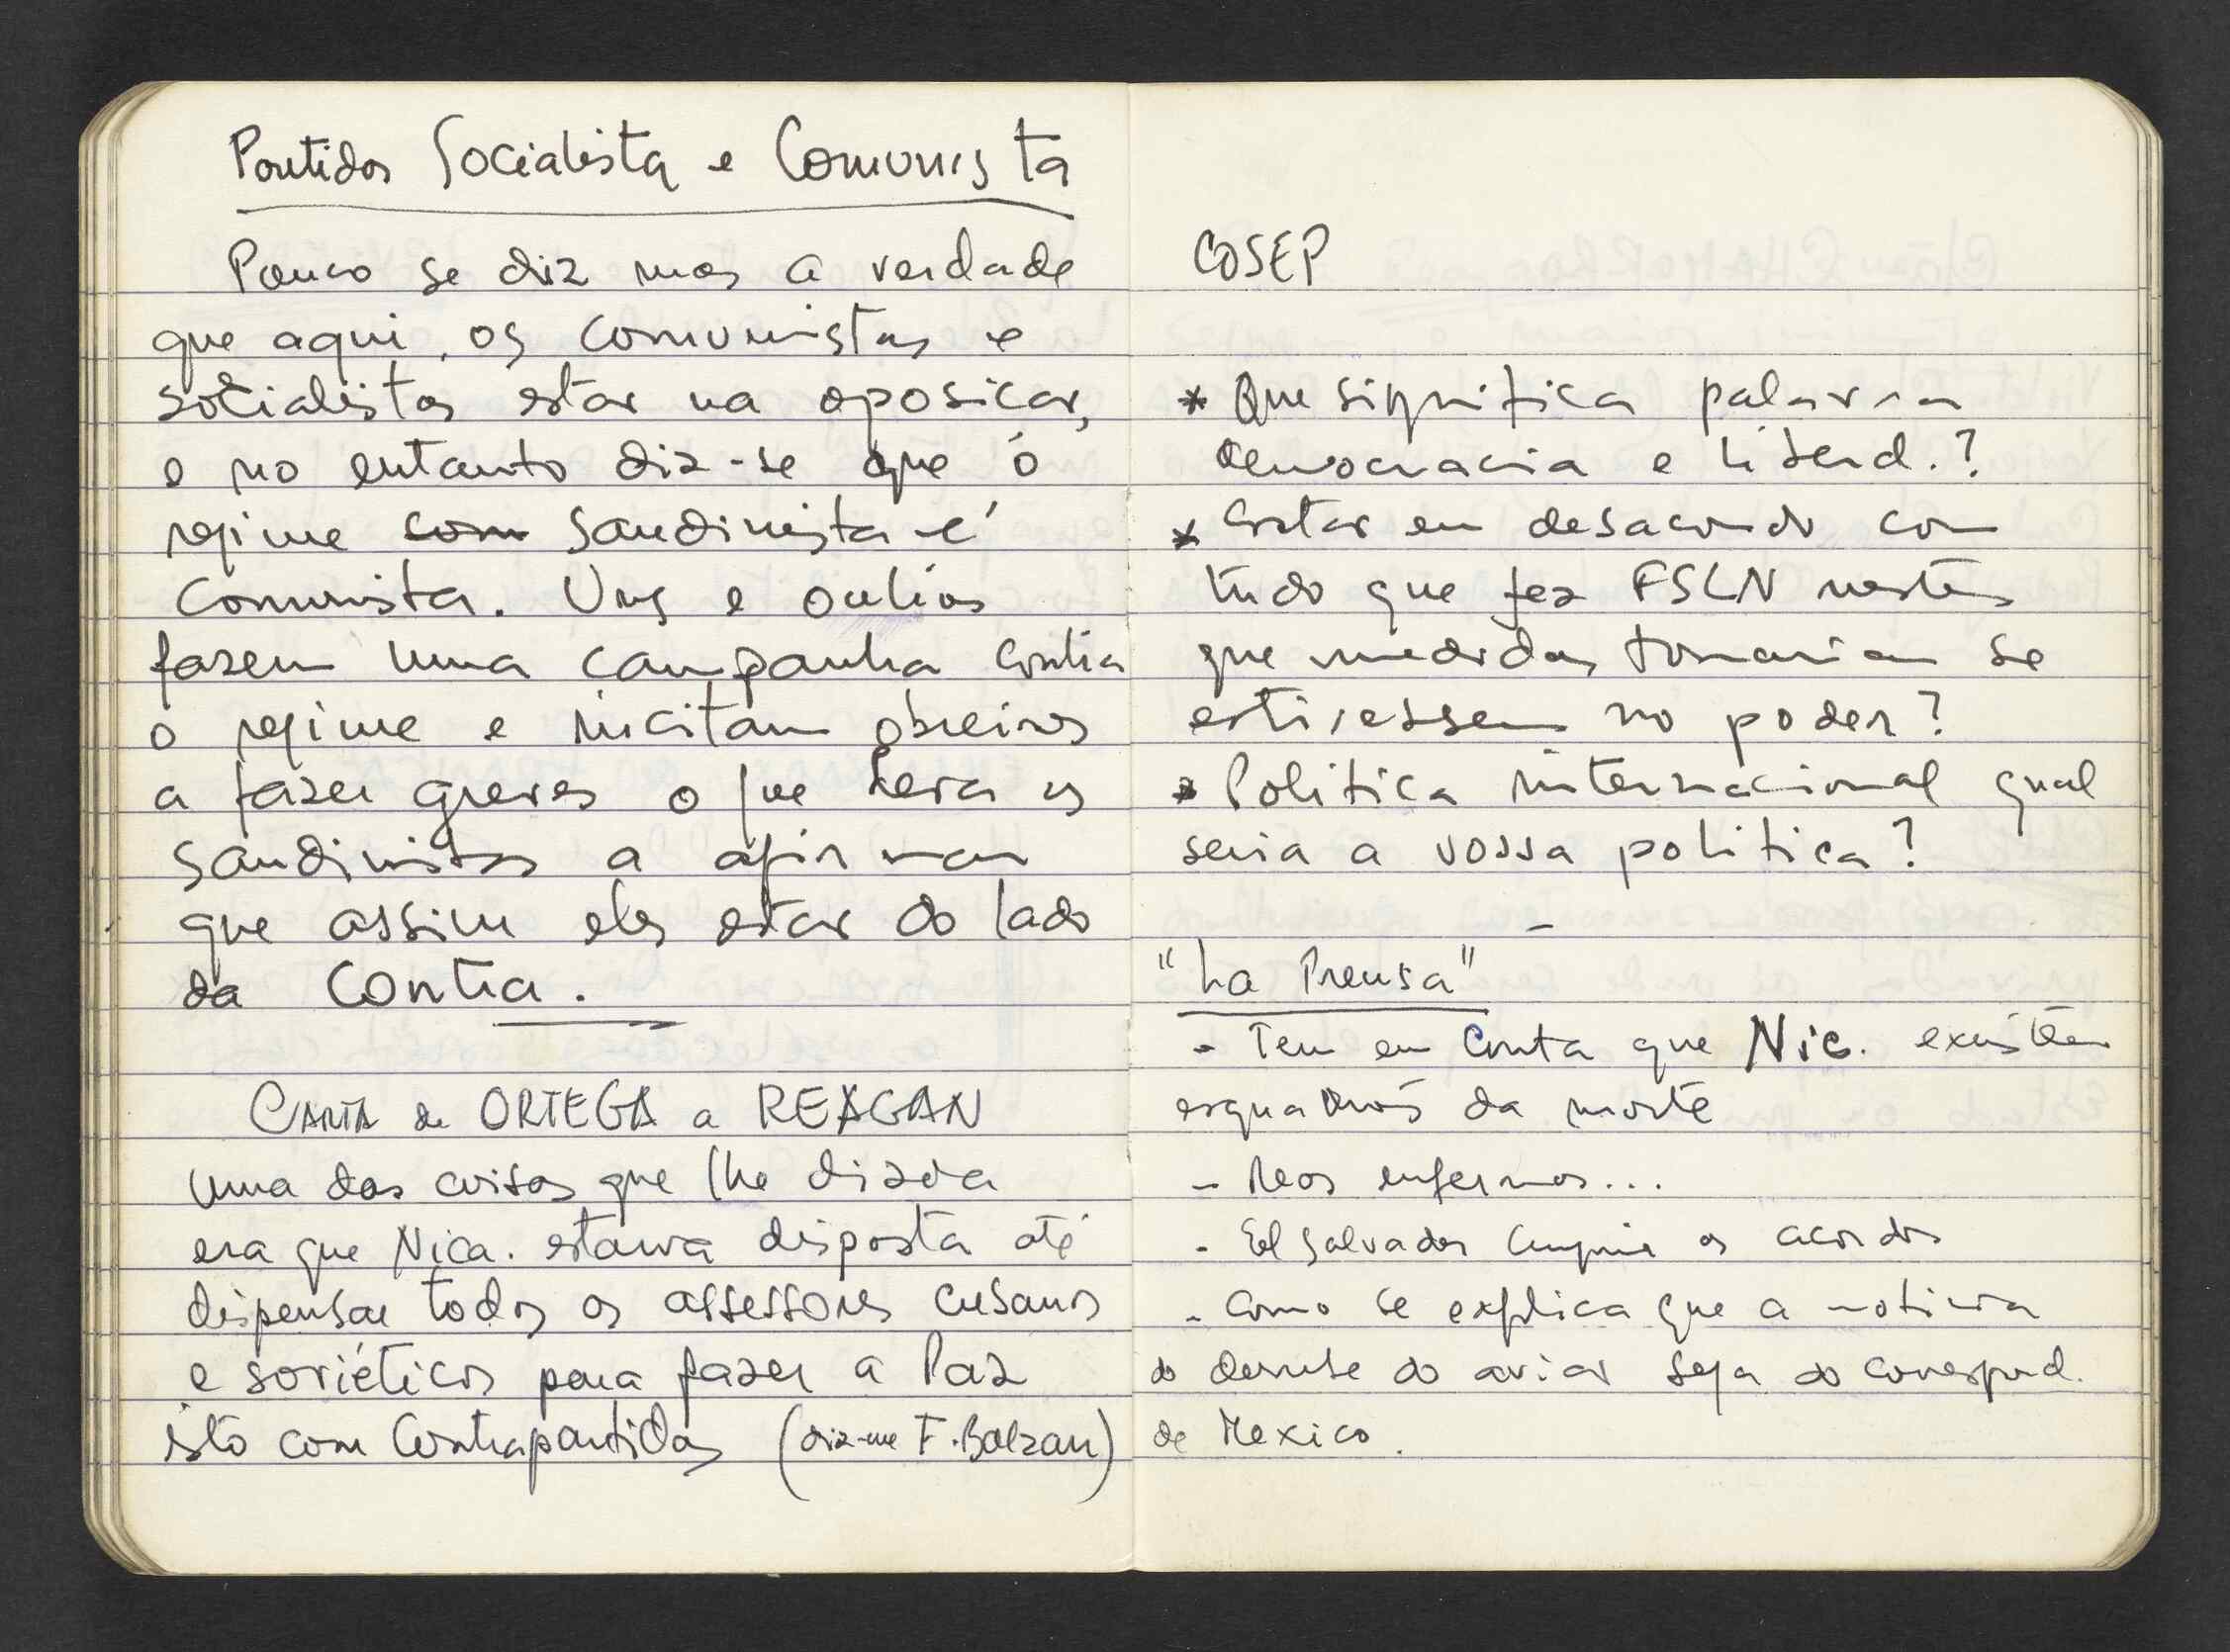 Partidos Socialista e Comunista
Pouco se diz mas a verdade
que aqui, os comunistas e
socialistas estão na oposição,
e no entanto diz-se que o
regime com Sandinista é
Comunista. Uns e outros
fazem uma campanha contra
o regime e incitam obreiros
a fazer greves o que leva os
Sandinistas a afirmar
que assim eles estão do lado
da Contra.
CARTA de ORTEGA a REAGAN
uma das coisas que lhe dizia
era que Nica. estava disposta até
dispensar todos os assessores cubanos
e soviéticos para fazer a Paz
isto com Contrapartidas (diz-me F. Balzan)
COSEP
* Que significa palavra
Democracia e liberd.?
* Estão em desacordo com
tudo que fez FSLN nestes
que medidas tomariam se
estivessem no poder?
* Politica internacional qual
seria a vossa politica?
-
"La Prensa"
- Tem em Conta que Nic. existem
esquadrões da morte
- Reos enfermos...
- El Salvador cumprir os acordos
- Como se explica que a noticia
do derrube do avião seja do correspond.
de Mexico.